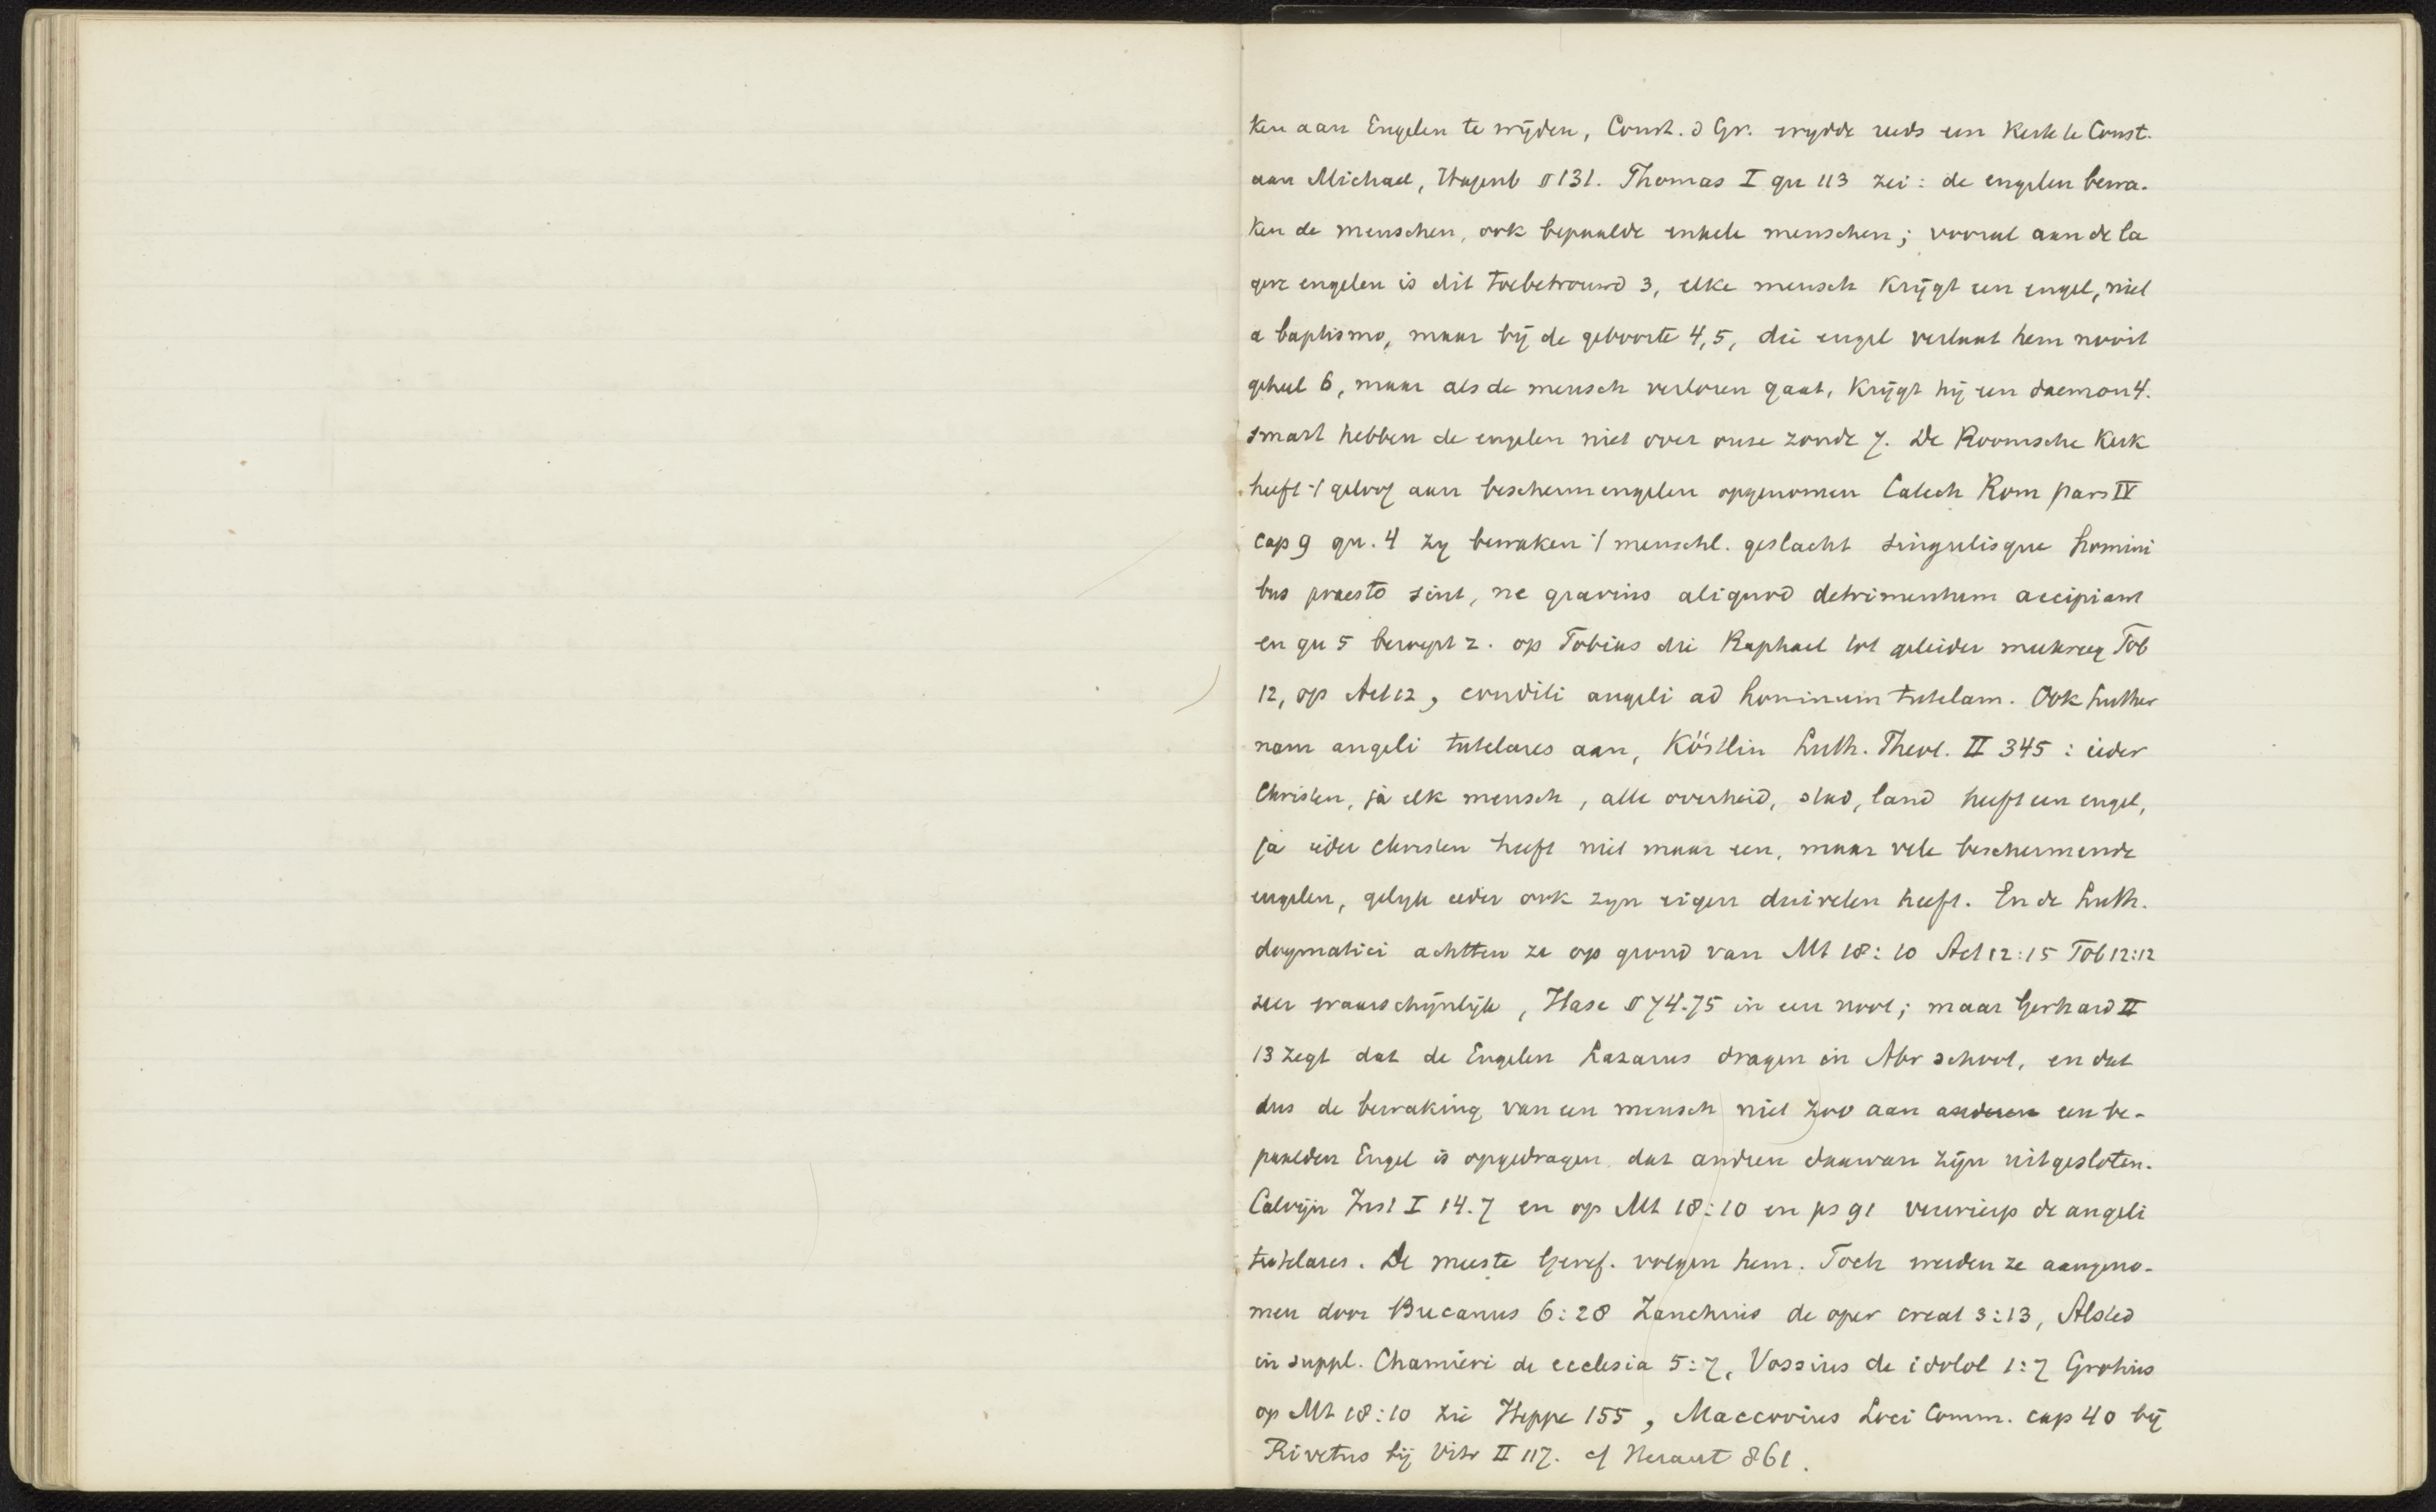 ken aan Engelen te wijden, Const. d Gr. wydde reeds een Kerk te Const.
aan Michael, Hagenb § 131. Thomas I qu 113 zei: de engelen bewa-
ken de menschen, ook bepaalde enkele menschen; vooral aan de la
gere engelen is dit toebetrouwd 3, elke mensch krijgt een engel, niet
a baptismo, maar bij de geboorte 4,5, die engel verlaat hem nooit
geheel 6, maar als de mensch verloren gaat, krijgt hij een daemon 4.
smart hebben de engelen niet over onze zonde 7. De Roomsche Kerk
heeft 't geloof aan beschermengelen opgenomen Catech Rom pars IV
cap 9 qu. 4 zy bewaken 't menschl. geslacht singulisque homini
bus praesto sint, ne gravius aliquod detrimentum accipiant
en qu 5 beroept z. op Tobias die Raphael tot geleider meekreeg Tob
12, op Act 12, conditi angeli ad hominum tutelam. Ook Luther
nam angeli tutelares aan, Köstlin Luth. Theol. II 345: ieder
Christen, ja elk mensch, alle overheid, stad, land heeft een engel,
ja ieder christen heeft niet maar een, maar vele beschermende
engelen, gelyk ieder ook zyn eigen duivelen heeft. En de Luth.
dogmatici achtten ze op grond van Mt 18:10 Act 12:15 Tob 12:12
zeer waarschijnlijk, Hase § 74.75 in een noot; maar Gerhard II
13 zegt dat de Engelen Lazarus dragen in Abr schoot, en dat
dus de bewaking van een mensch niet zoo aan anderen een be-
paalden Engel is opgedragen dat andren daarvan zijn uitgesloten.
Calvijn Inst I 14.7 en op Mt 18:10 en ps 91 verwierp de angeli
tutelares. De meeste Geref. volgen hem. Toch werden ze aangeno-
men door Bucanus 6:28 Zanchius de oper creat 3:13, Alsted
in suppl. Chamieri de ecclesia 5:7, Vossius de idolol 1:7 Grotius
op Mt 18:10 zie Heppe 155, Maccovius Loci Comm. cap 40 bij
Rivetus bij Vitr II 117. cf Heraut 861.